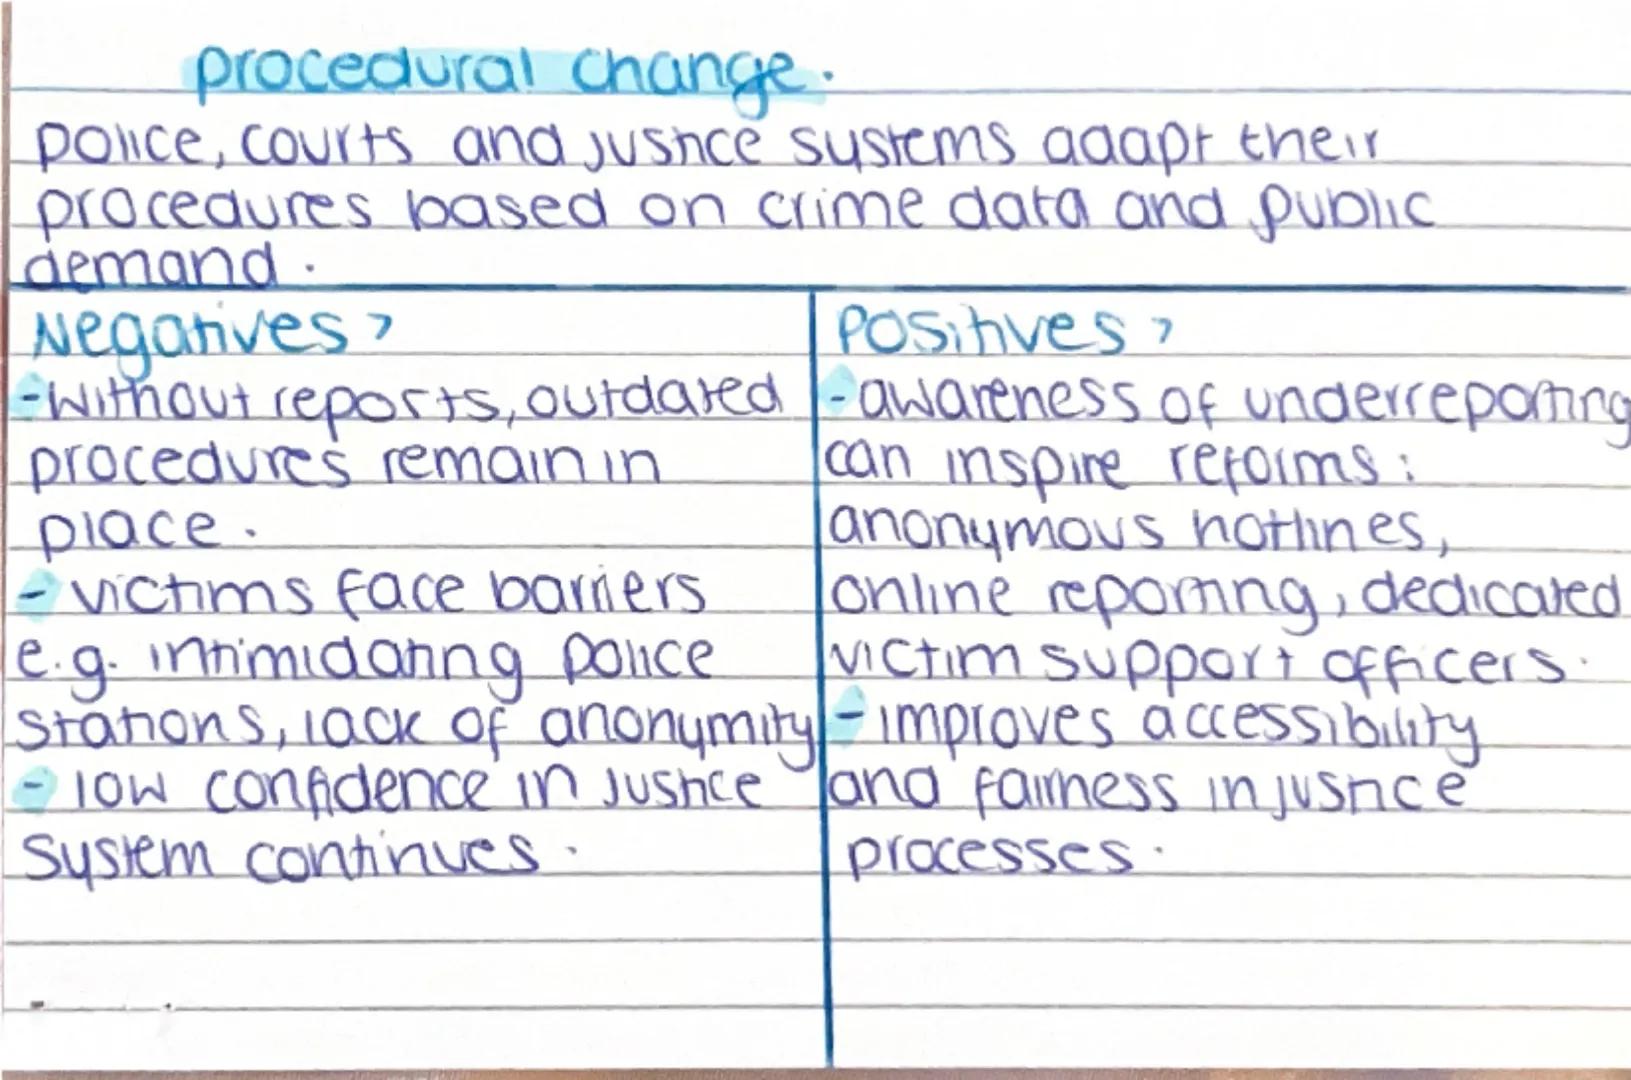 procedural change.
police, courts and justice systems adapt their
procedures based on crime data and public
demand.
Negatives >
-Without reports, outdated
procedures remain in
place.
- victims face barriers
e.g. intimidating police
stations, lack of anonymity
- low confidence in justice
system continues.
Positives >
-awareness of underreporting
can inspire reforms:
anonymous hotlines,
online reporting, dedicated
victim support officers.
-improves accessibility
and fairness in justice
processes.